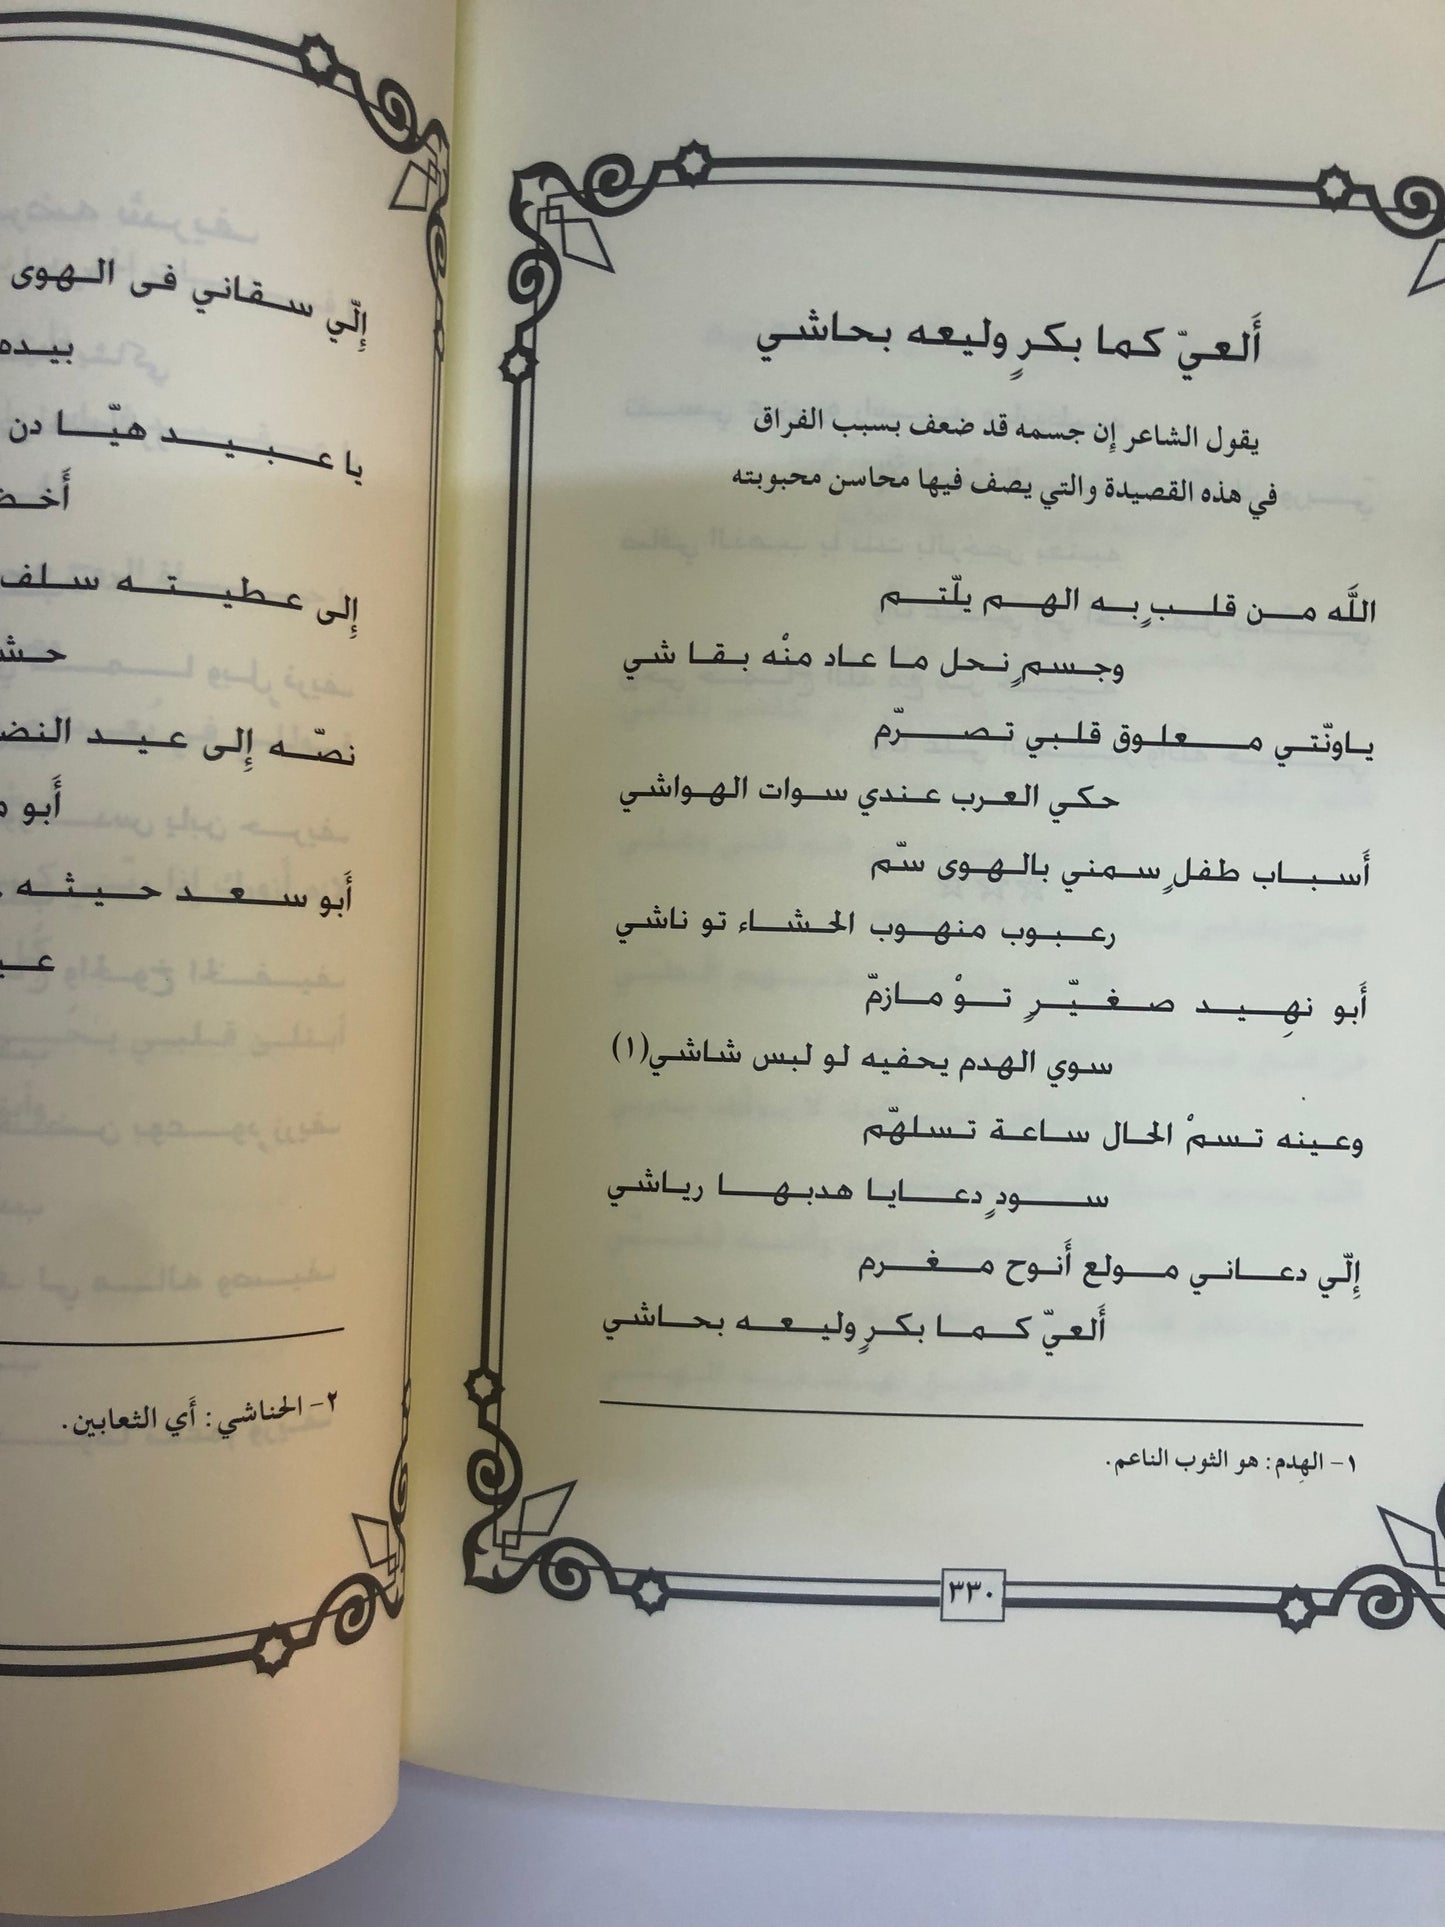 أَلعيّ كما بكرٍ وليعه بحاشي
يقول الشاعر إن جسمه قد ضعف بسبب الفراق
في هذه القصيدة والتي يصف فيها محاسن محبوبته
اللَّه مـن قلـبٍ به الهـم يلّتـم
وجـسمٍ نحل ما عاد منْه بقا شي
ياونّتي مـعلوق قلبي تـصـرّم
حكي العرب عندي سوات الهواشي
أسباب طفلٍ سمني بالهوى سّم
رعبوب منهوب الحشاء تو ناشي
أَبو نهِيد صغيّرٍ توْ مازمّ
سوي الهدم يحفيه لو لبس شاشي(١)
وعينه تسمْ الحال ساعة تسلهّم
سودٍ دعايا هدبها رياشي
إِلّي دعاني مولع أَنوح مغرم
أَلعيّ كما بكرٍ وليعه بحاشي
١- الهِدم: هو الثوب الناعم.
٣٣٠
إِلّي سقاني فى الهوى
بيده
يا عبيد هيّا دن
إِلى عطيته سلف
نصّه إِلى عيد النض
أَبو
أَبو سعد حيثه
٢- الحناشي: أَي الثعابين.